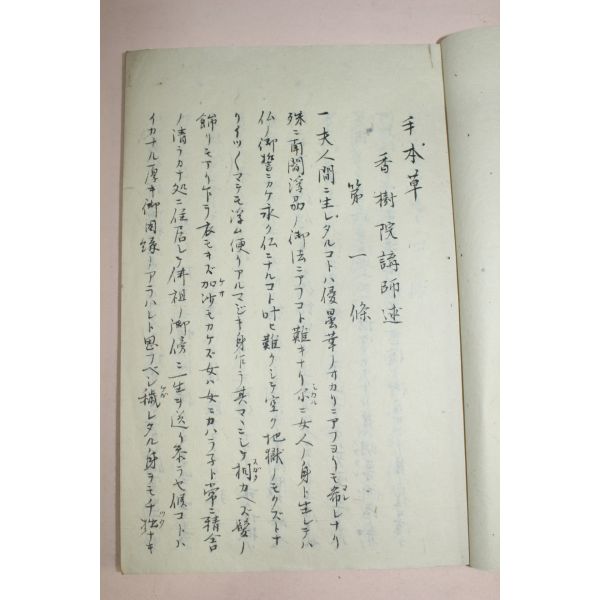 手本草
香樹院講師述
第一條
一夫人間ニ生レタルコトハ優曇華ノサカリニアフヨリモ希レナリ
殊ニ南閻浮㐧ノ御法ニアフコト難キナリ尓ニ女人ノ身ト生レテハ
仏ノ御誓ニカケ永ク仏ニナルコト叶ヒ難クシテ空ク地獄ノモクズトナ
リイツ〳〵マテモ浮ム便リアルマジキ身乍ラ其マヽニシテ相カヘズ髪ノ
飾リモアリ乍ラ衣モキズ加沙モカケズ女ハ女ニカハラ子ト常ニ精舎
ノ清ラカナ処ニ住居シテ佛祖ノ御傍ニ一生ヲ送リ奉ラセ候コトハ
イカナル厚キ御因縁ノアラハレト思フベシ穢レタル身ヲモチ拙ナキ